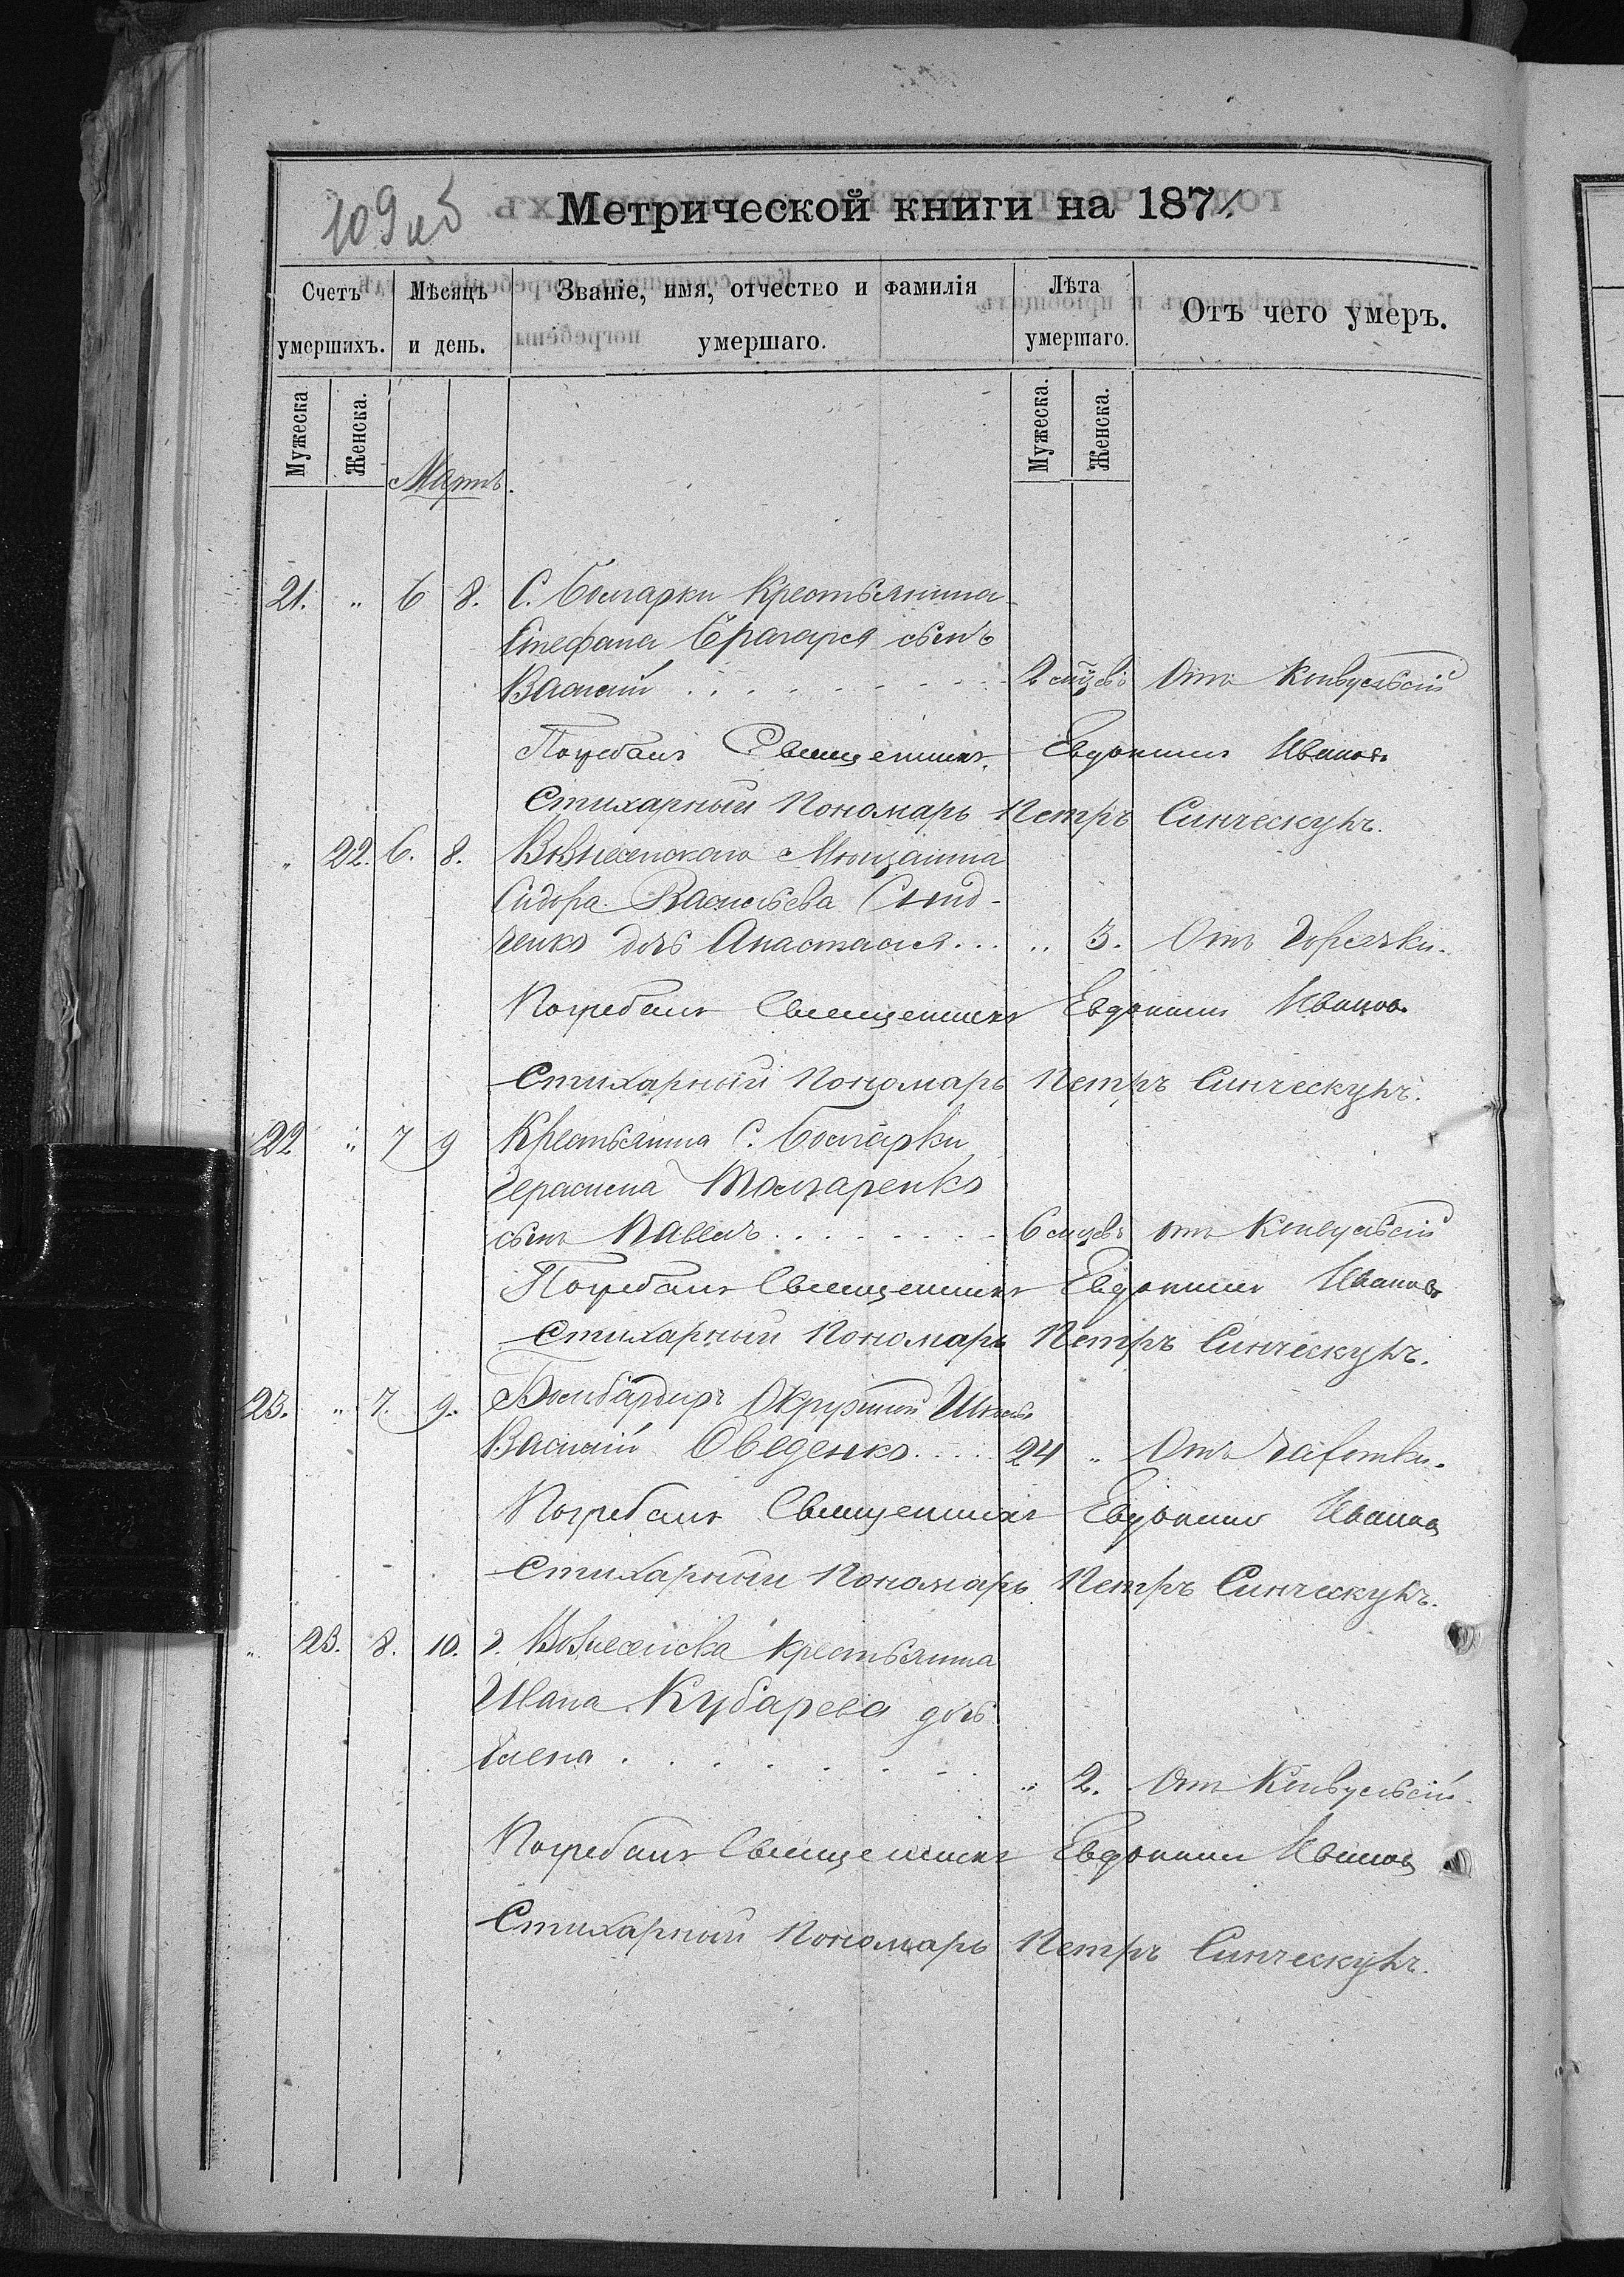 109 об
Метрической книги на 1871
Счетъ умершихъ. Мѣсяцъ и день. Званіе, имя, отчество и фамилія умершаго. Лѣта умершаго. Отъ чего умеръ.
Мужеска Женска. Мужеска. Женска.
Мартъ.
21. " 6 8. С. Болгарки Крестьянина
Стефана Брагаря сынъ
Василій 2 мцевъ Отъ Конвульсій
Погребалъ Священникъ Евдокимъ Ивановъ
Стихарный Пономарь Петръ Синческулъ.
" 22. 6. 8. Вознесенскаго Мѣщанина
Сидора Васильева
ченко дочь Анастасія " 3. Отъ Горячки.
Погребалъ Священникъ Евдокимъ Ивановъ
Стихарный Пономарь Петръ Синческулъ.
22 " 7 9 Крестьянина С. Болгарки
Герасима
сынъ Павелъ 6 мцевъ отъ Конвульсій
Погребалъ Священникъ Евдокимъ Ивановъ
Стихарный Пономарь Петръ Синческулъ.
23. " 7. 9. Бомбардиръ Окружной
Василій 24 " Отъ чахотки.
Погребалъ Священникъ Евдокимъ Ивановъ
Стихарный Пономарь Петръ Синческулъ.
" 23. 8. 10. г. Вознесенска Крестьянина
Ивана Кубарева дочь
Елена " 2. Отъ Конвульсій.
Погребалъ Священникъ Евдокимъ Ивановъ
Стихарный Пономарь Петръ Синческулъ.